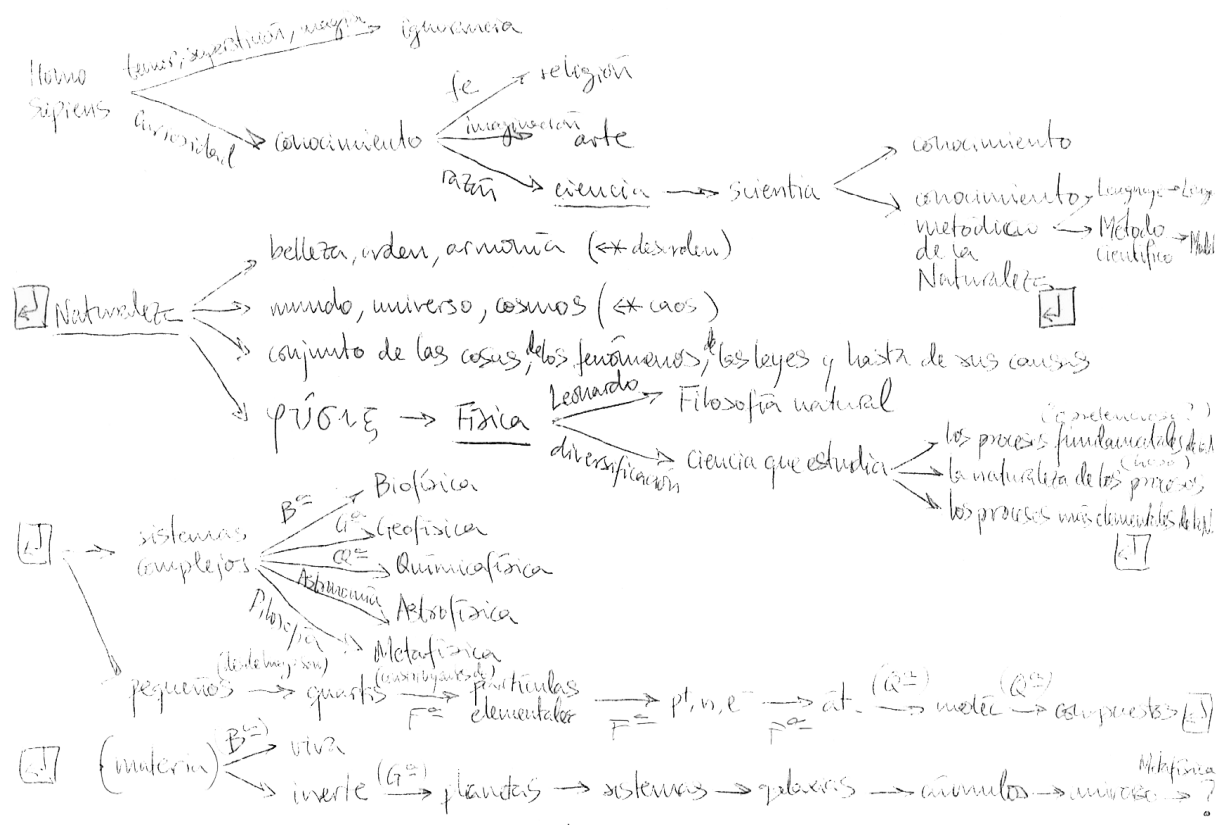 Homo Sapiens
temor, superstición, magia → ignorancia
curiosidad → conocimiento
fe → religión
imaginación → arte
razón → ciencia → scientia
conocimiento
conocimiento metódico de la Naturaleza
Método científico
Naturaleza
belleza, orden, armonía (desorden)
mundo, universo, cosmos (caos)
conjunto de las cosas, de los fenómenos, de las leyes y hasta de sus causas
φύσις → Física
Leonardo → Filosofía natural
diversificación → ciencia que estudia
los procesos fundamentales de
la naturaleza de los procesos
los procesos más elementales de
sistemas complejos
Bª → Biofísica
Gª → Geofísica
Qª → Quimicafísica
Astronomía → Astrofísica
Filosofía → Metafísica
pequeños → quarks → Fª partículas elementales → Fª p⁺, n, e⁻ → Fª át. → (Qª) moléc → (Qª) compuestos
(materia)
Bª) → viva
inerte (Gª) → planetas → sistemas → galaxias → cúmulos → universo → Metafísica ?